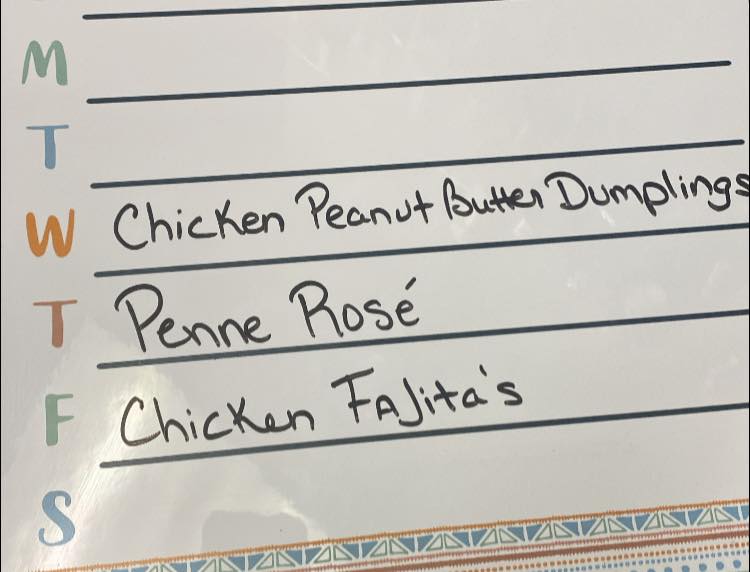 M
T
W Chicken Peanut Butter Dumplings
T Penne Rosé
F Chicken FAJita's
S